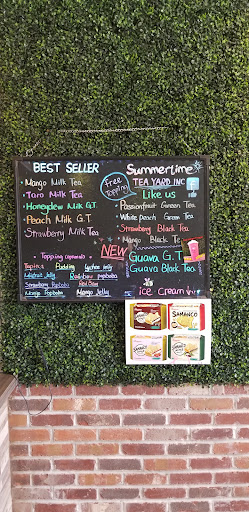 BEST SELLER
Mango Milk Tea
Taro Milk Tea
Honeydew Milk G.T
Peach Milk G.T
Strawberry Milk Tea
Free
Topping
Summertime
TEA YARD INC
Like us
Passionfruit Green Tea
White Peach Green Tea
Strawberry Black Tea
Mango Black Te
NEW
Guava G.T
Guava Black Tea
Topping
Tapioca Pudding Lychee Jelly
Rainbow popboba
Strawberry Popboba
Mango Popboba Mango Jelly
ice cream
SAMANCO